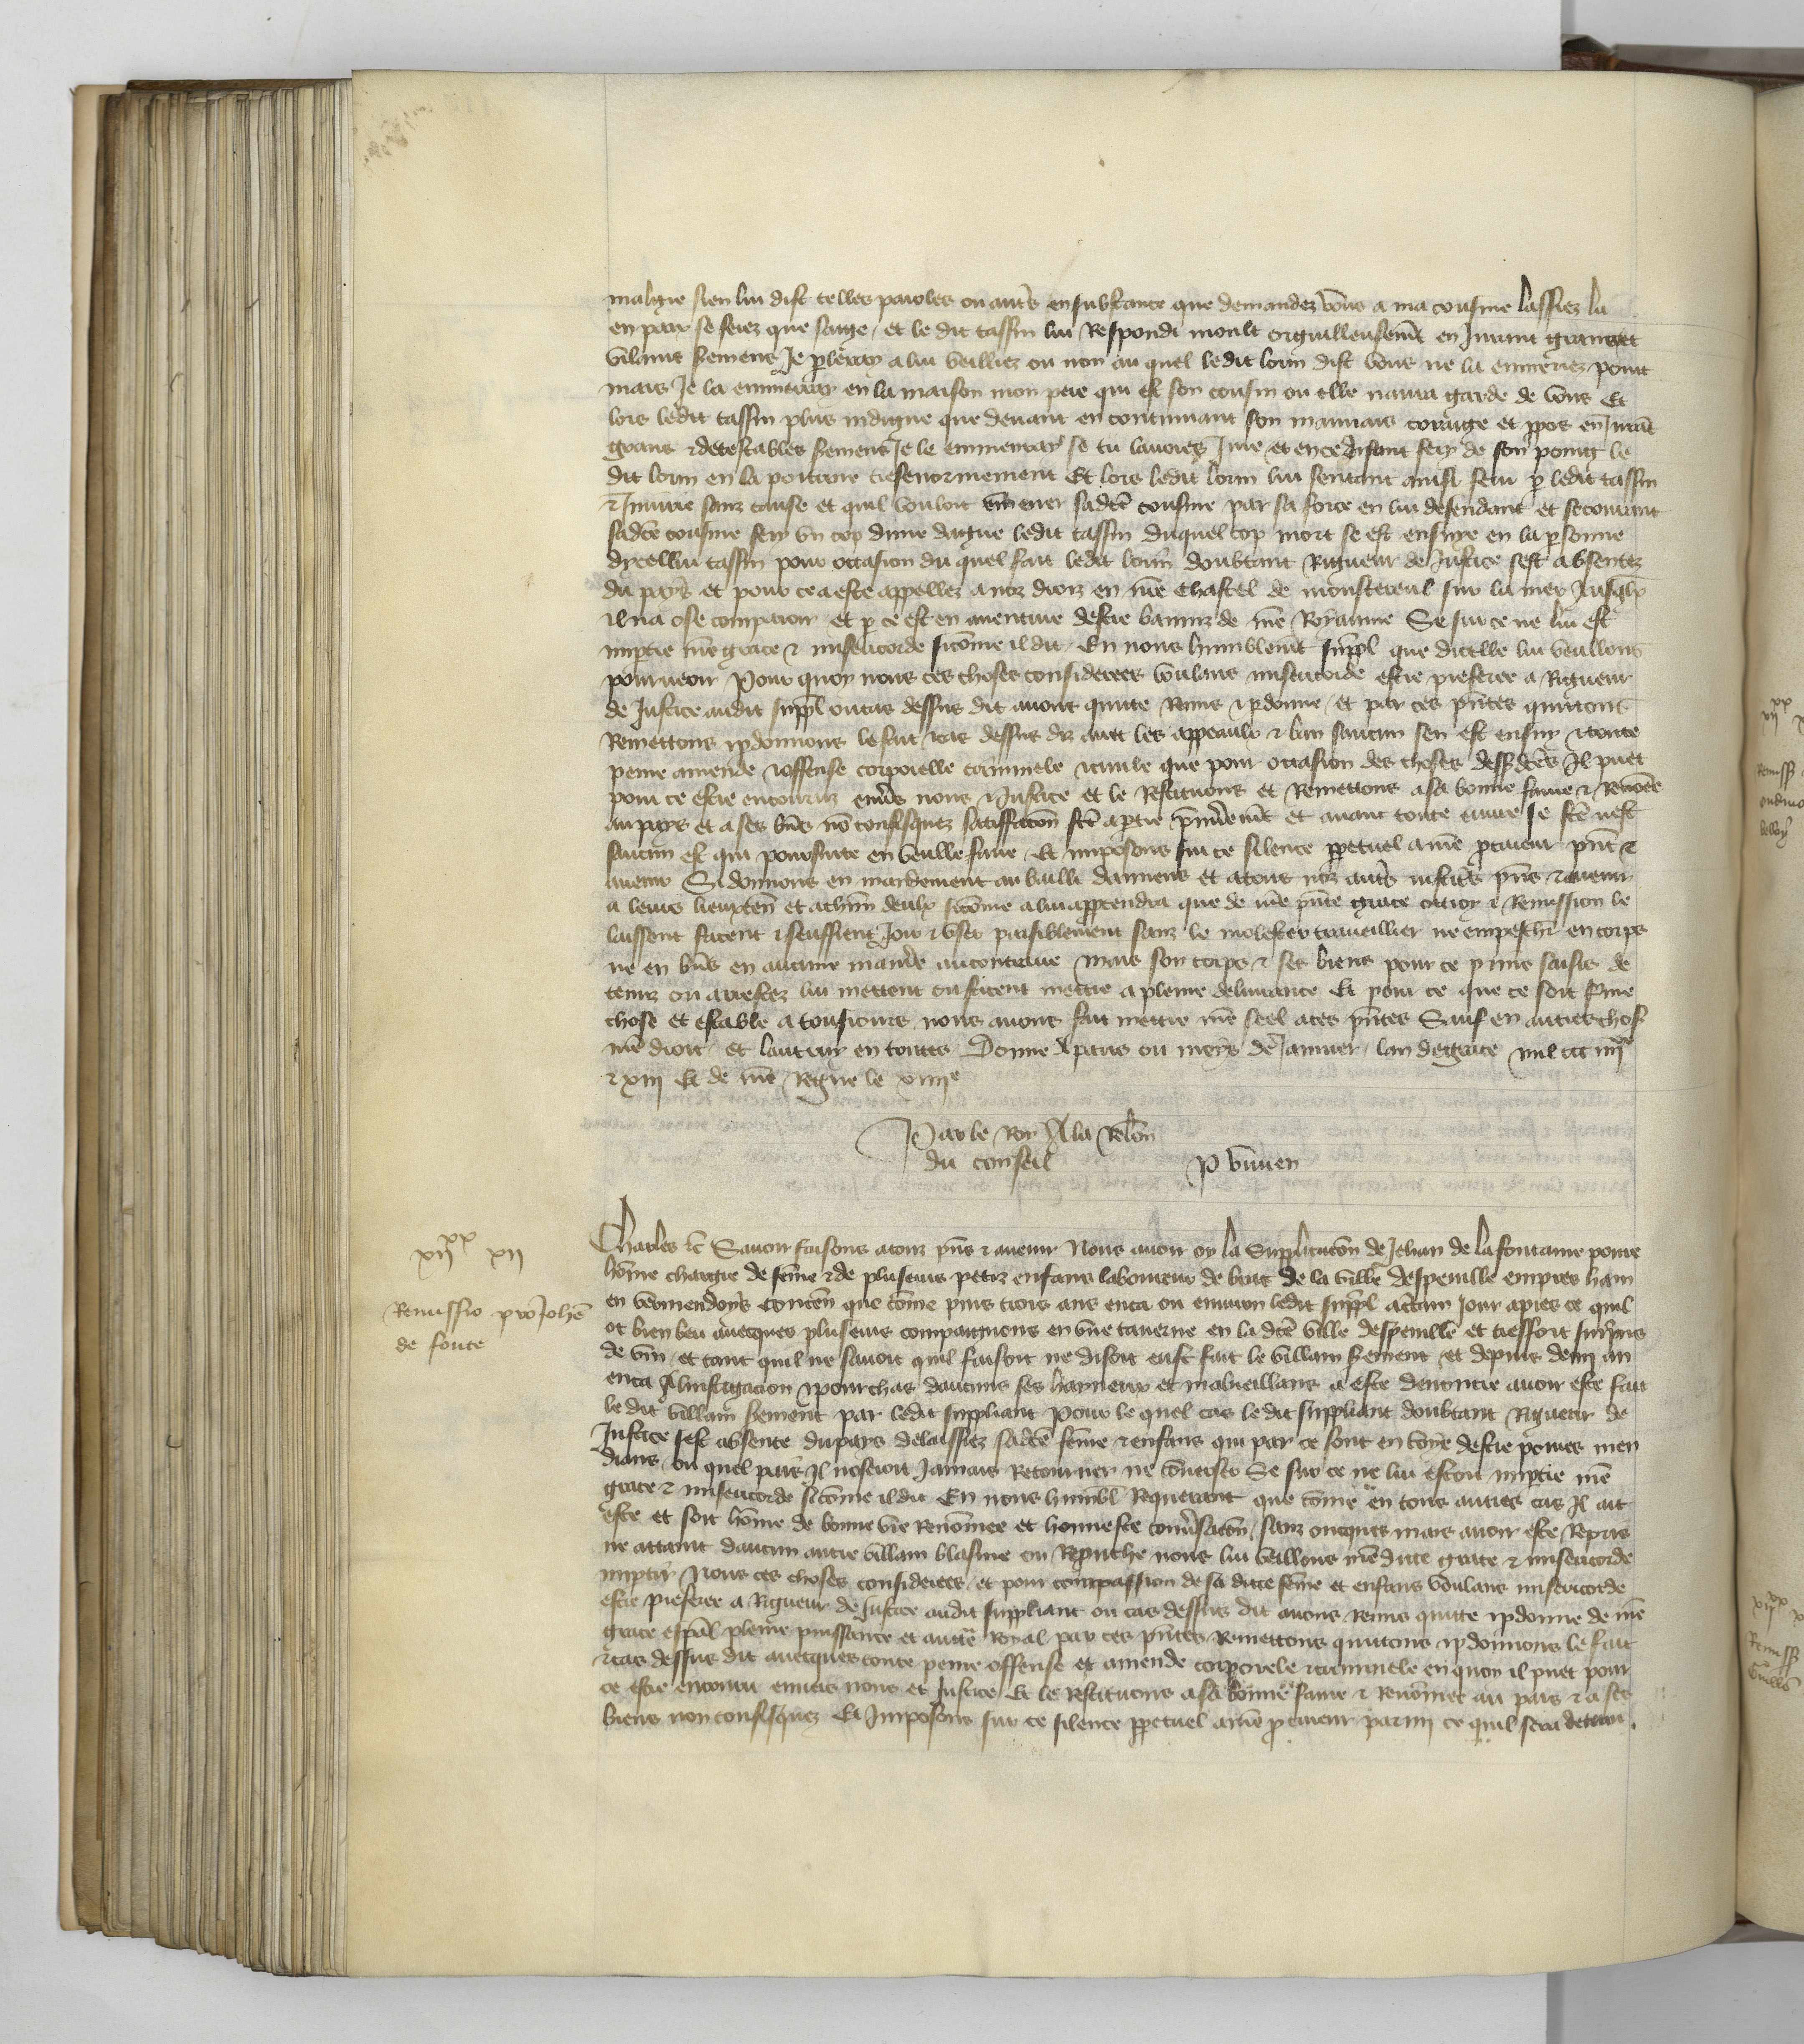 malgre sien lui dist telles paroles ou autres en substance que demandez vous a ma cousine laissiez la
en paix se ferez que saige et le dit tassin lui Respondi moult orguilleusemt en Jurant grans et
vilains seremens Je parleray a lui veilliez ou non au quel ledit lorin dist vous ne la enmenrez point
mais Je la enmenray en la maison mon pere qui est son cousin ou elle naura garde de vous Et
lors ledit tassin plus indigne que devant en continuant son mauvais corage et ppos en Jurat
grans & detestables seremens Je le enmenray se tu lavoies Jure et en ce disant fery de son poing le
dit lorin en la poitrine tresenormement Et lors ledit lorin lui sentant ainsi feru p ledit tassin
& Jniurie sanz cause et quil vouloit emmener sadce cousine par sa force en lui defendant et secourant
sadce cousine fery un cop dune dague ledit tassin duquel cop mort se est ensuye en la psonne
dycellui tassin pour occasion du quel fait ledit lorin doubtant Rigueur de Justice sest absentez
du pays et pour ce a este appellez a noz droiz en nre Chastel de monstereul sur la mer Ausqlx
il na ose comparoir et p ce est en aventure destre banniz de nre Royaume Se sur ce ne lui est
impartie nre grace & misericorde sicome il dit En nous humblemt suppl que dicelle lui veullons
pourveoir Pour quoy nous ces choses considerees voulans misericorde estre preferee a Rigueur
de Justice audit suppl ou cas dessus dit avons quitte Remis & pdonne et par ces pntes quittons
Remettons & pdonnons le fait & cas dessus diz avec les appeaulx & ban saucun sen est ensuy & toute
peine amende & offense corporelle criminele & civile que pour occasion des choses dessdces Il puet
pour ce estre encouruz envs nous & Justice et le Restituons et Remettons a sa bonne fame & Renoee
au pays et a ses bns no confisquez satiffacon fce a ptie pmierent et avant toute euvre se fce nest
saucun est qui poursuite en veulle faire Et imposons sur ce silence ppetuel a nre pcureur pnt &
avenir Si donnons en mandement au bailli damiens et a tous noz autrs iusticiers pns & avenir
a leurs lieuxten et a chun deulx sicome a lui appartendra que de nre pnte grace ottroy & Remission le
laissent facent & seuffrent Joir & user paisiblement sanz le molester travaillier ne empeschr en corps
ne en bns en aucune maniere au contraire mais son corps & ses biens pour ce prins saisis de
tenuz ou arrestez lui mettent ou facent mettre a pleine delivrance Et pour ce que ce soit ferme
chose et estable a tousiours nous avons fait mettre nre seel a ces pntes Sauf en autres choses
nre droit et lautruy en toutes Donne A paris ou moys de Janvier lan de grace mil ccc iiijxx
& xiij Et de nre Regne le xiiije
Par le Roy A la Relon
du conseil
P Vivien
xijxx xij
Remissio pro Johe
de fonte
Charles &c Savoir faisons a touz pns & avenir Nous avoir oy la supplicacon de Jehan de la fontaine povre
home chargie de feme & de pluseurs petiz enfans laboureur de bras de la ville despeville empres ham
en vermendoys conten que come puis trois ans enca ou environ ledit suppl aucun Jour apres ce quil
ot bien beu avecques pluseurs compaignons en une taverne en la dce ville despeville et tresfort surpris
de vin et tant quil ne savoit quil faisoit ne disoit eust fait le villain serement et depuis demi an
enca A linstigacion & pourchas daucuns ses hayneux et malveillans a este denoncie avoir este fait
le dit villain serement par ledit suppliant Pour le quel cas le dit suppliant doubtant Rigueur de
Justice sest absente du pays delaissiez sadce feme & enfans qui par ce sont en voye destre povres men
dians ou quel pais Il noseroit Jamais Retourner ne converser Se sur ce ne lui estoit impartie nre
grace & misericorde sicome il dit En nous humbl Requerant que come en tous autres cas Il ait
este et soit home de bonne vie Renomee et honneste conversacon sanz oncques mais avoir este Repris
ne attaint daucun autre villain blasme ou Reprouche nous lui veillons nre dicte grace & misericorde
impartir Nous ces choses considerees et pour compassion de sa dicte feme et enfans voulans misericorde
estre preferee a Rigueur de Justice audit suppliant ou cas dessus dit avons Remis quitte & pdonne de nre
grace espal pleine puissance et aucte Royal par ces pntes Remettons quittons & pdonnons le fait
& cas dessus dit avecques toute peine offense et amende corporele & criminele en quoy il puet pour
ce estre encouru envers nous et Justice Et le Restituons a sa bonne fame & Renomee au pais & a ses
biens non confisquez Et Imposons sur ce silence ppetuel a nre pcureur parmi ce quil sera detenu